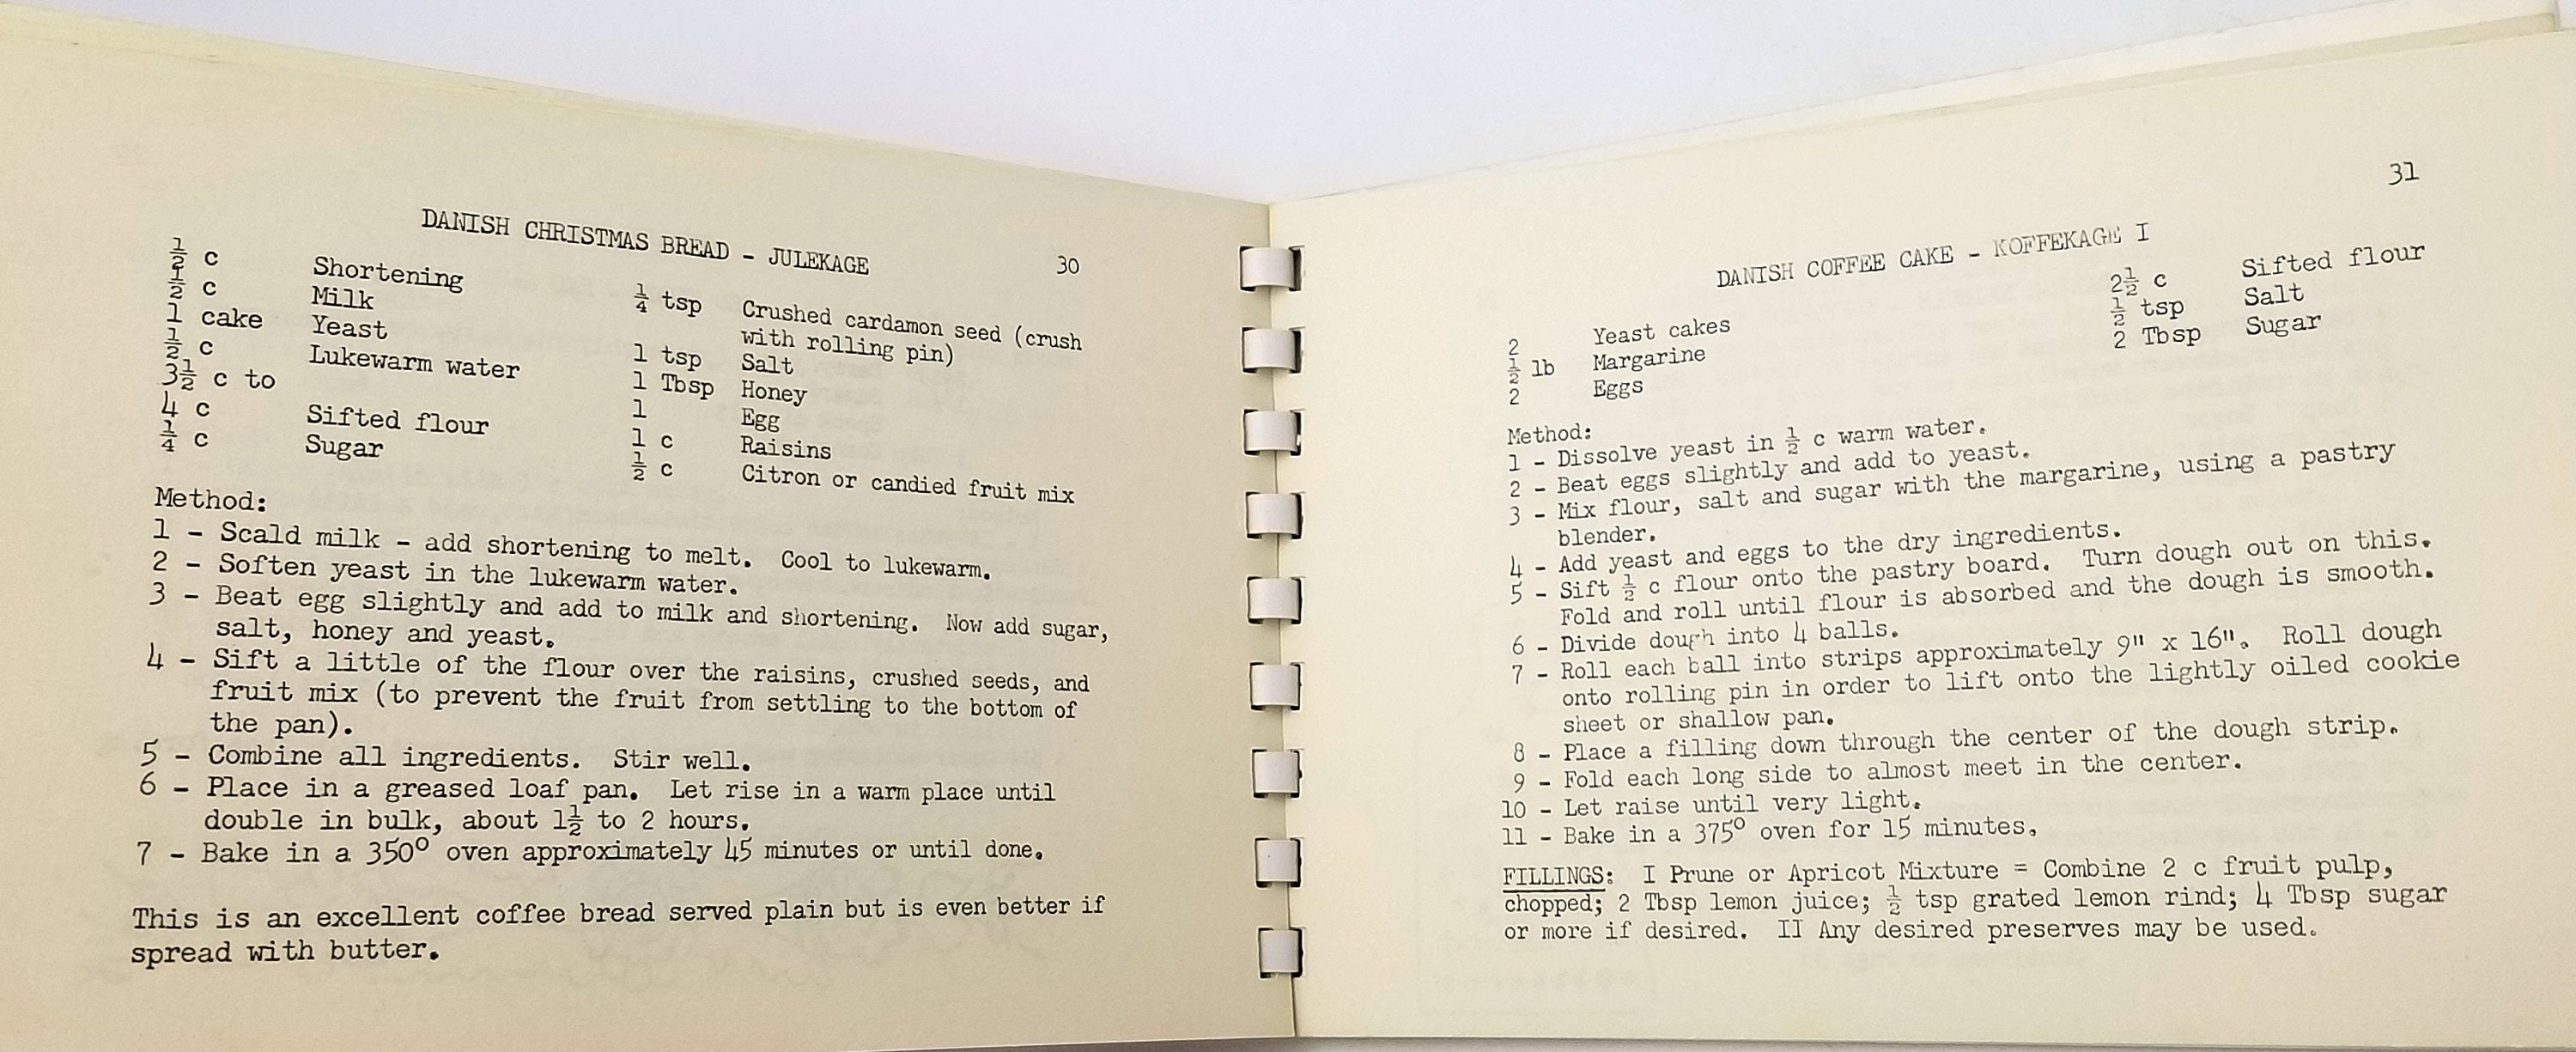 DANISH CHRISTMAS BREAD - JULEKAGE 30
½ c Shortening
½ c Milk
1 cake Yeast
½ c Lukewarm water
3½ c to
4 c Sifted flour
¼ c Sugar
¼ tsp Crushed cardamon seed (crush
with rolling pin)
1 tsp Salt
1 Tbsp Honey
1 Egg
1 c Raisins
½ c Citron or candied fruit mix
Method:
1 - Scald milk - add shortening to melt. Cool to lukewarm.
2 - Soften yeast in the lukewarm water.
3 - Beat egg slightly and add to milk and shortening. Now add sugar,
salt, honey and yeast.
4 - Sift a little of the flour over the raisins, crushed seeds, and
fruit mix (to prevent the fruit from settling to the bottom of
the pan).
5 - Combine all ingredients. Stir well.
6 - Place in a greased loaf pan. Let rise in a warm place until
double in bulk, about 1½ to 2 hours.
7 - Bake in a 350° oven approximately 45 minutes or until done.
This is an excellent coffee bread served plain but is even better if
spread with butter.
31
DANISH COFFEE CAKE - KOFFEKAGE I
2 Yeast cakes
½ lb Margarine
2 Eggs
2½ c Sifted flour
½ tsp Salt
2 Tbsp Sugar
Method:
1 - Dissolve yeast in ½ c warm water.
2 - Beat eggs slightly and add to yeast.
3 - Mix flour, salt and sugar with the margarine, using a pastry
blender.
4 - Add yeast and eggs to the dry ingredients.
5 - Sift ½ c flour onto the pastry board. Turn dough out on this.
Fold and roll until flour is absorbed and the dough is smooth.
6 - Divide dough into 4 balls.
7 - Roll each ball into strips approximately 9" x 16". Roll dough
onto rolling pin in order to lift onto the lightly oiled cookie
sheet or shallow pan.
8 - Place a filling down through the center of the dough strip.
9 - Fold each long side to almost meet in the center.
10 - Let raise until very light.
11 - Bake in a 375° oven for 15 minutes.
FILLINGS: I Prune or Apricot Mixture = Combine 2 c fruit pulp,
chopped; 2 Tbsp lemon juice; ½ tsp grated lemon rind; 4 Tbsp sugar
or more if desired. II Any desired preserves may be used.